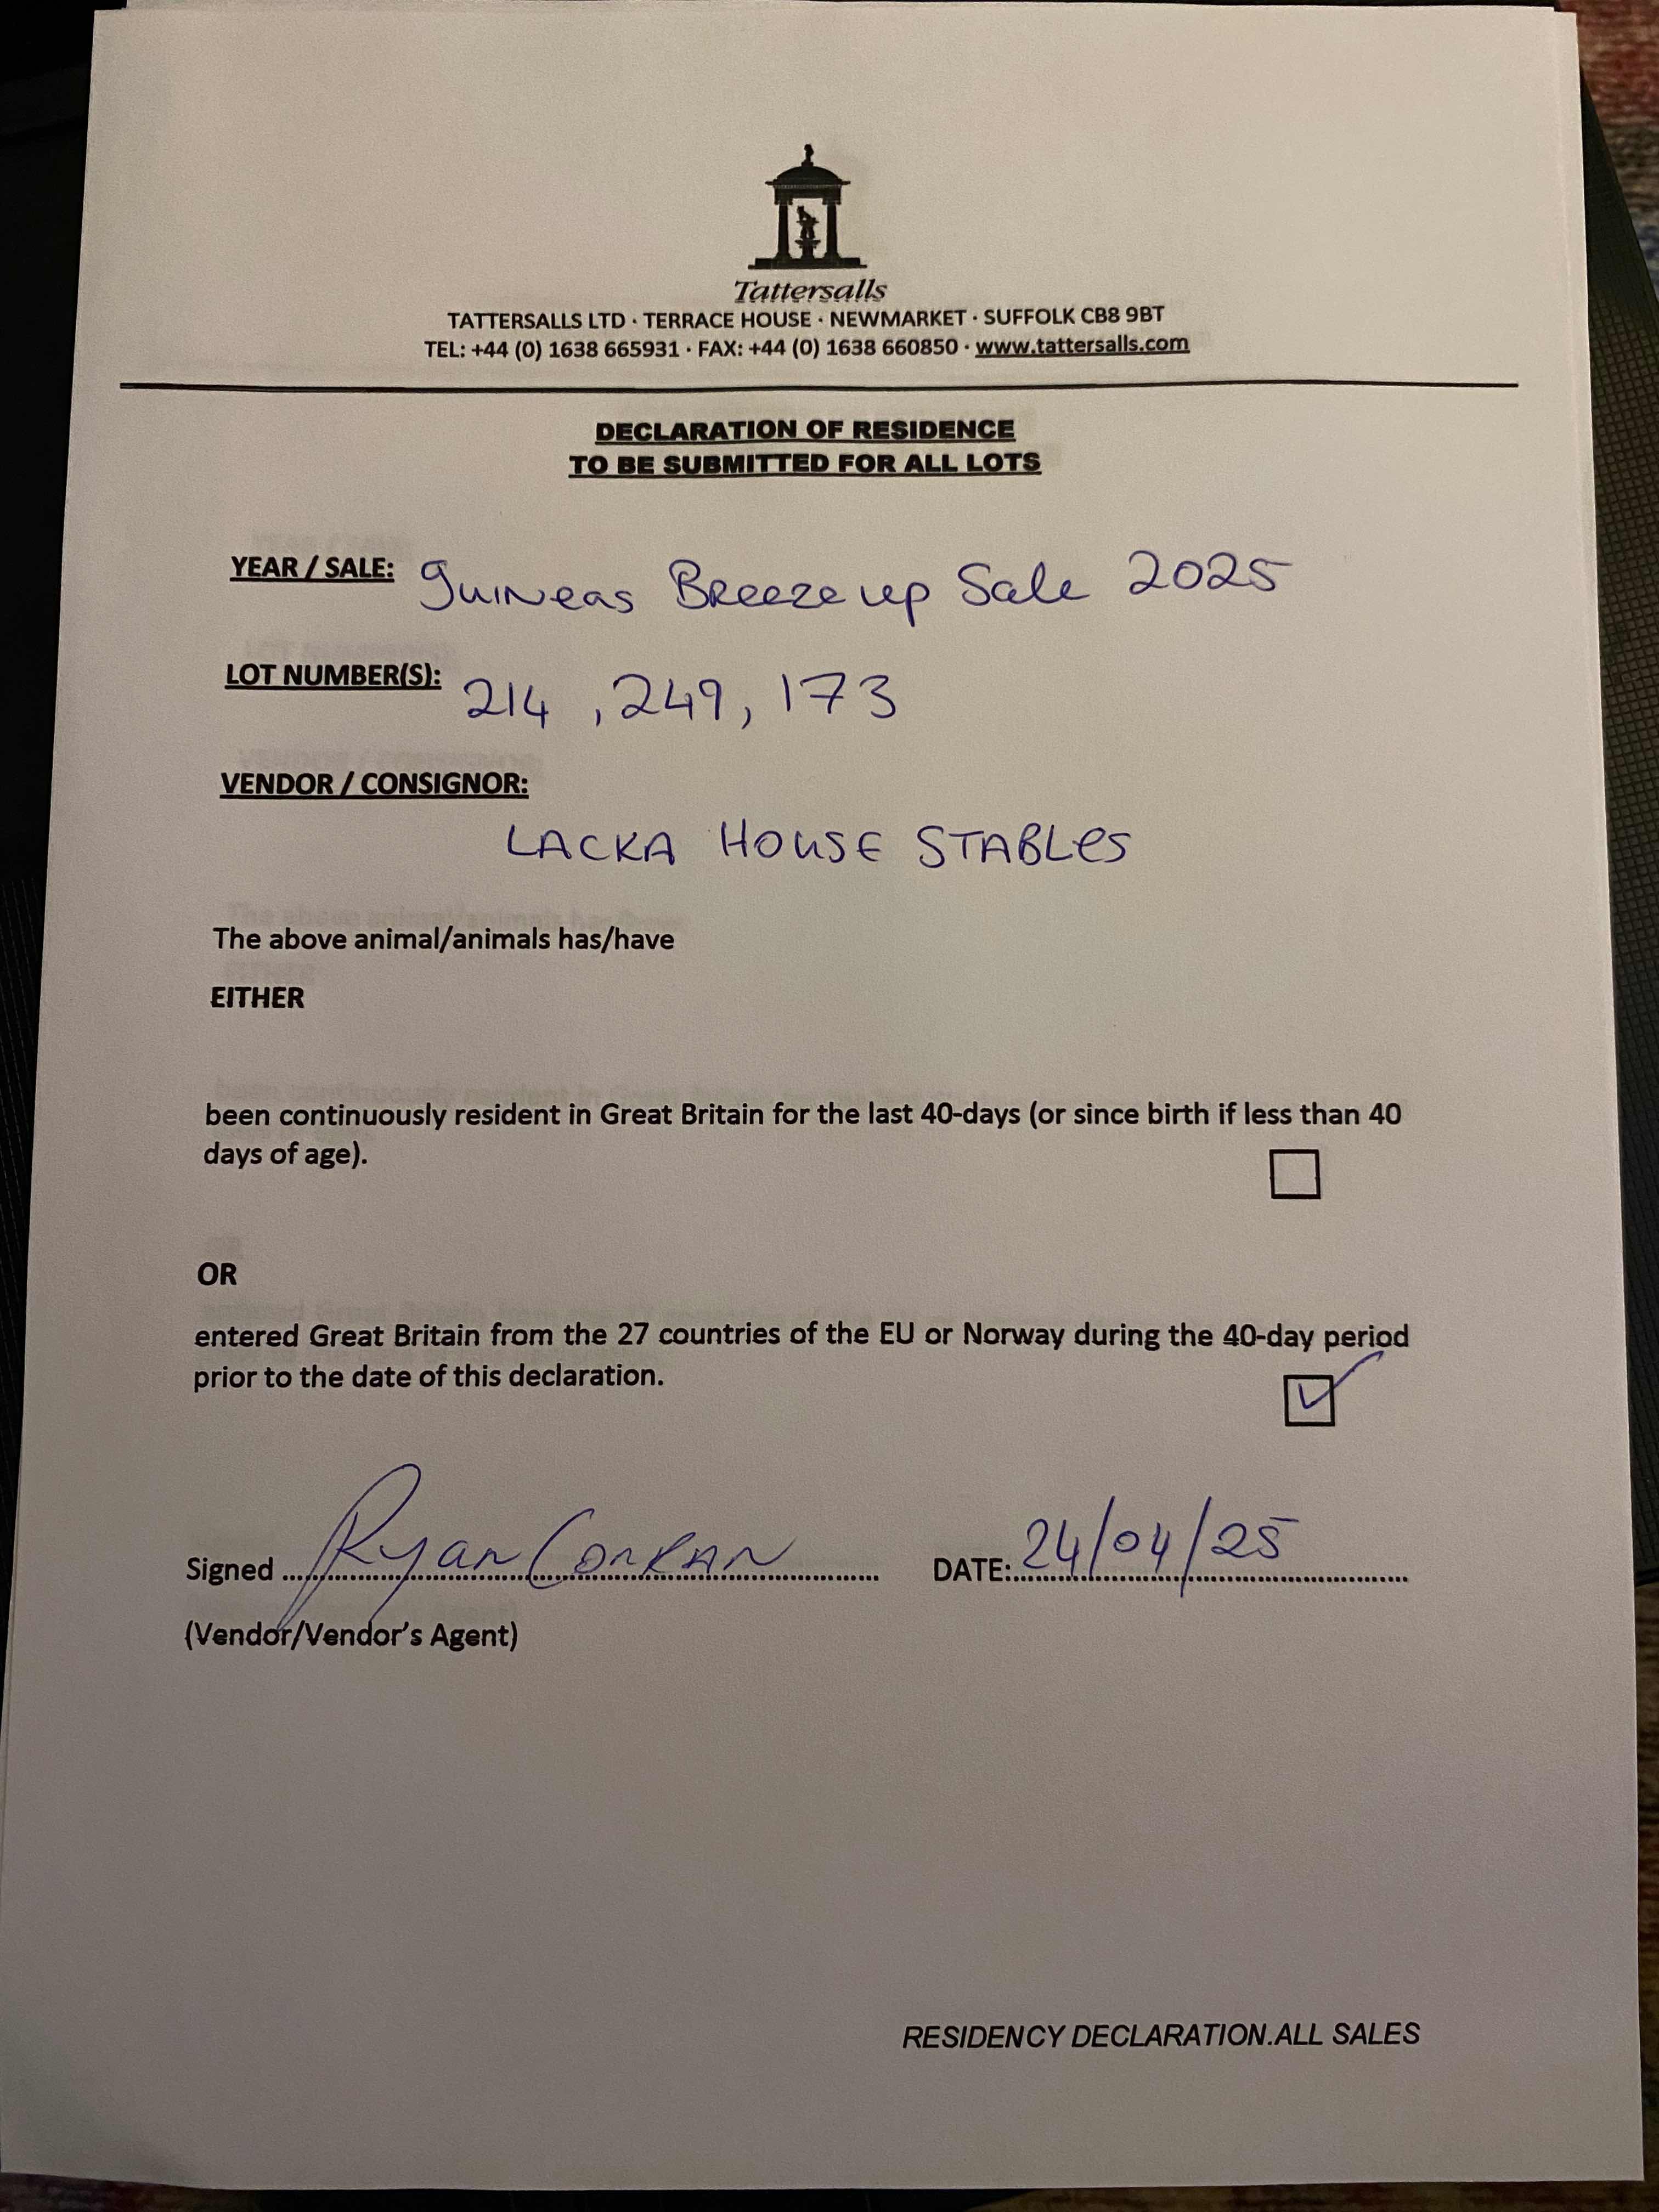 Tattersalls
TATTERSALLS LTD · TERRACE HOUSE · NEWMARKET · SUFFOLK CB8 9BT
TEL: +44 (0) 1638 665931 · FAX: +44 (0) 1638 660850 · www.tattersalls.com
DECLARATION OF RESIDENCE
TO BE SUBMITTED FOR ALL LOTS
YEAR / SALE: Guineas Breeze up Sale 2025
LOT NUMBER(S): 214 , 249, 173
VENDOR / CONSIGNOR:
LACKA HOUSE STABLES
The above animal/animals has/have
EITHER
been continuously resident in Great Britain for the last 40-days (or since birth if less than 40
days of age).
OR
entered Great Britain from the 27 countries of the EU or Norway during the 40-day period
prior to the date of this declaration.
Signed Ryan Conran DATE: 24/04/25
(Vendor/Vendor's Agent)
RESIDENCY DECLARATION.ALL SALES